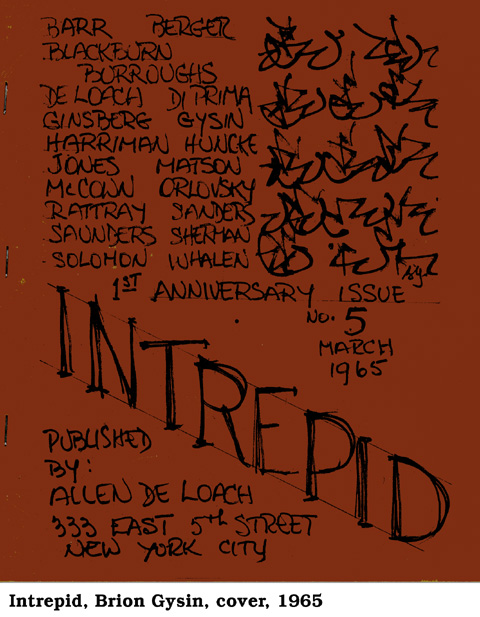 BARR BERGER
BLACKBURN
BURROUGHS
DE LOACH DI PRIMA
GINSBERG GYSIN
HARRIMAN HUNCKE
JONES MATSON
McCOWN ORLOVSKY
RATTRAY SANDERS
SAUNDERS SHERMAN
SOLOMON WHALEN
1ST ANNIVERSARY ISSUE
NO. 5
MARCH
1965
INTREPID
PUBLISHED
BY:
ALLEN DE LOACH
333 EAST 5th STREET
NEW YORK CITY
Intrepid, Brion Gysin, cover, 1965